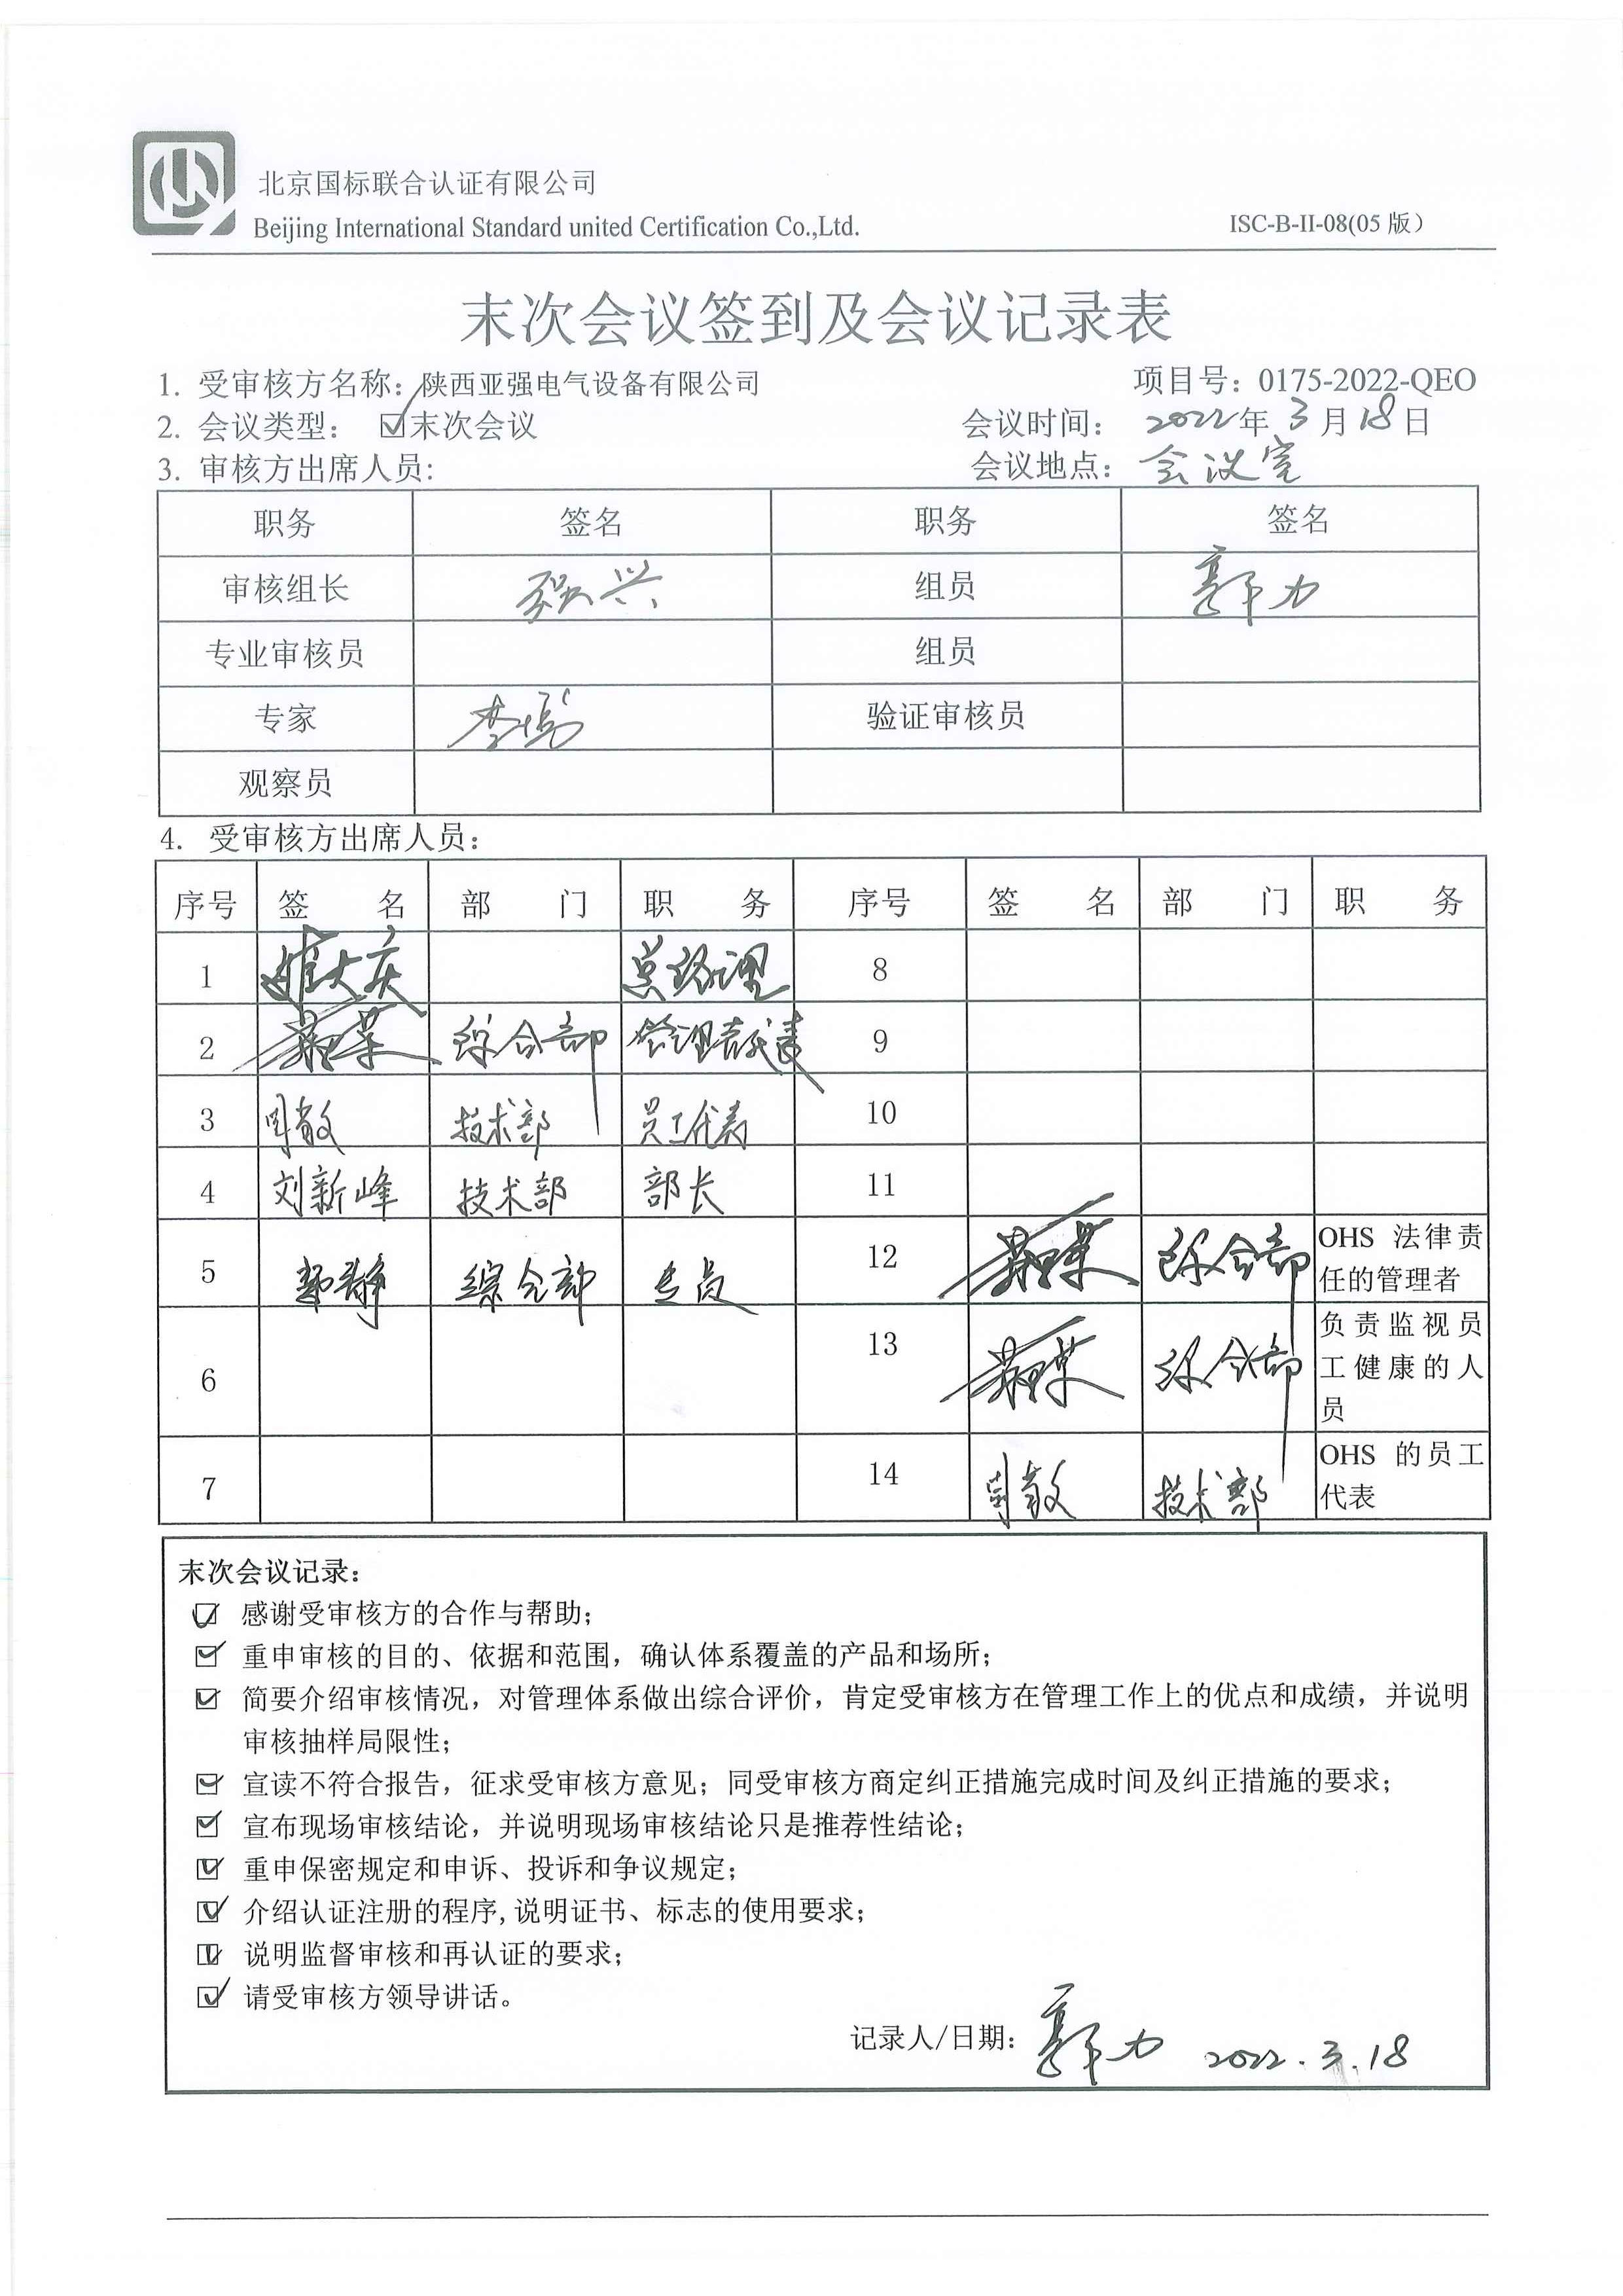 北京国标联合认证有限公司
Beijing International Standard united Certification Co.,Ltd.
ISC-B-II-08(05版）
末次会议签到及会议记录表
1. 受审核方名称：陕西亚强电气设备有限公司 项目号：0175-2022-QEO
2. 会议类型： ☑末次会议 会议时间： 2022年3月18日
3. 审核方出席人员: 会议地点：会议室
职务 签名 职务 签名
审核组长 组员 郭力
专业审核员 组员
专家 验证审核员
观察员
4. 受审核方出席人员：
序号 签 名 部 门 职 务 序号 签 名 部 门 职 务
1 总经理 8
2 综合部 管理者代表 9
3 技术部 员工代表 10
4 刘新峰 技术部 部长 11
5 郭静 综合部 专员 12 综合部 OHS 法律责
任的管理者
6 13 综合部 负责监视员
工健康的人
员
7 14 技术部 OHS 的员工
代表
末次会议记录：
☑ 感谢受审核方的合作与帮助；
☑ 重申审核的目的、依据和范围，确认体系覆盖的产品和场所；
☑ 简要介绍审核情况，对管理体系做出综合评价，肯定受审核方在管理工作上的优点和成绩，并说明
审核抽样局限性；
☑ 宣读不符合报告，征求受审核方意见；同受审核方商定纠正措施完成时间及纠正措施的要求；
☑ 宣布现场审核结论，并说明现场审核结论只是推荐性结论；
☑ 重申保密规定和申诉、投诉和争议规定；
☑ 介绍认证注册的程序,说明证书、标志的使用要求；
☑ 说明监督审核和再认证的要求；
☑ 请受审核方领导讲话。
记录人/日期：郭力 2022.3.18